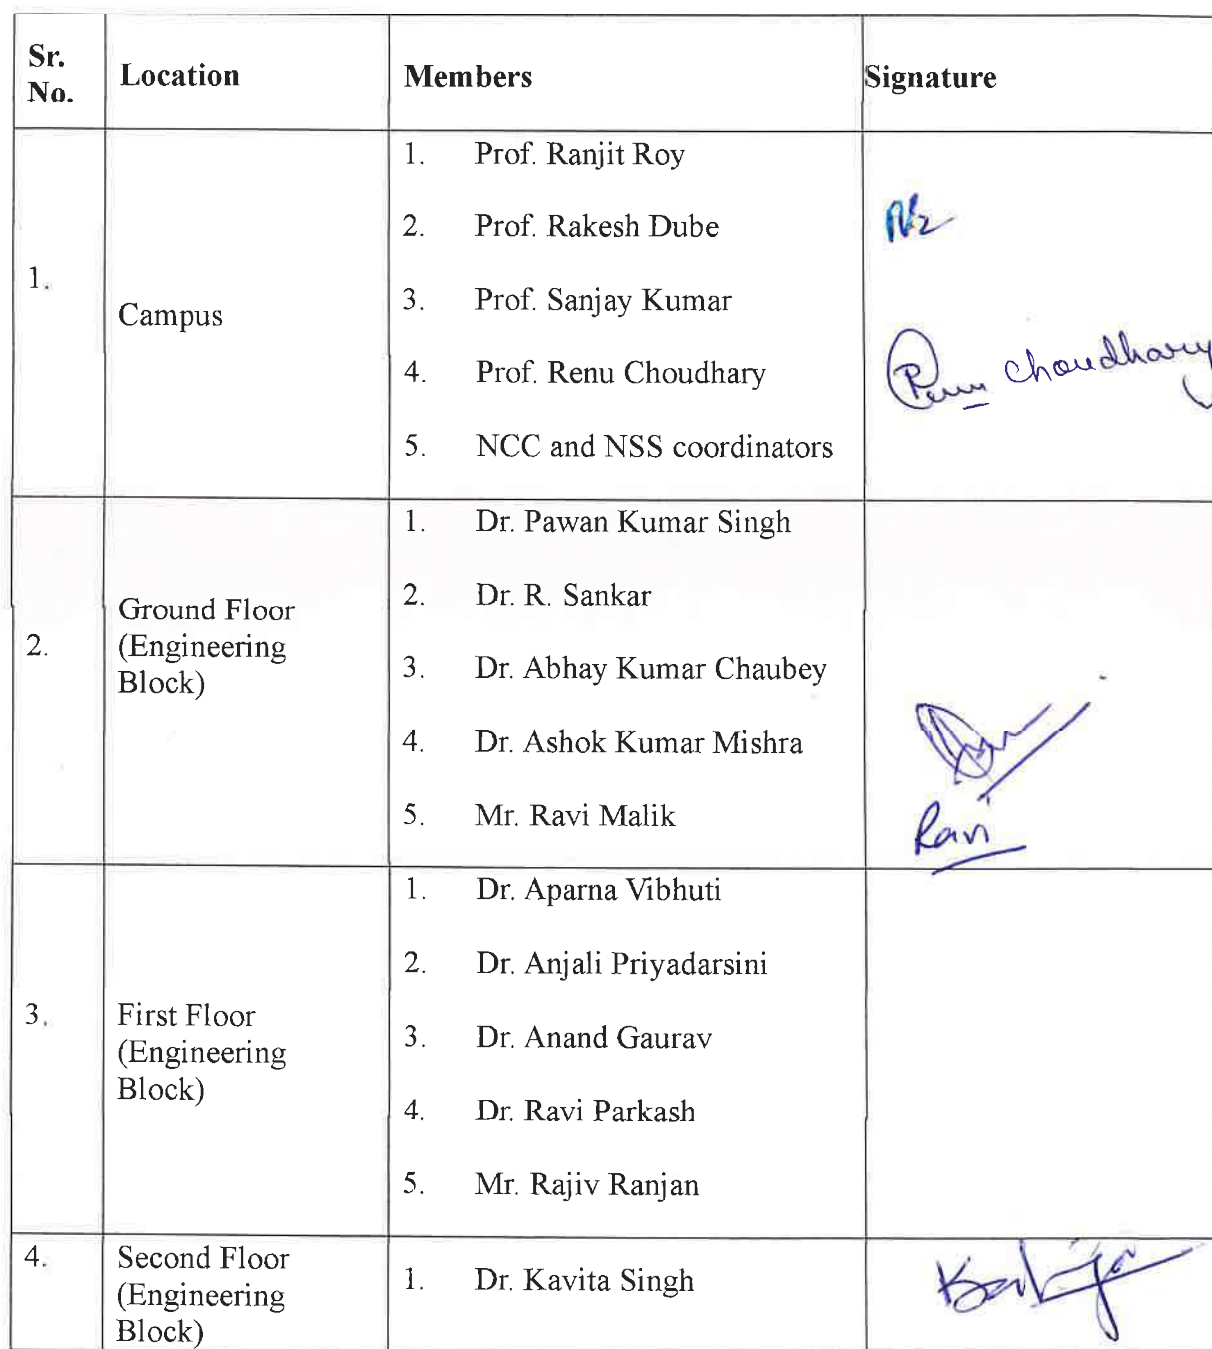 Sr. No.
Location
Members
Signature
1.
Campus
1. Prof. Ranjit Roy
2. Prof. Rakesh Dube
3. Prof. Sanjay Kumar
4. Prof. Renu Choudhary
5. NCC and NSS coordinators
Renu Choudhary
2.
Ground Floor
(Engineering
Block)
1. Dr. Pawan Kumar Singh
2. Dr. R. Sankar
3. Dr. Abhay Kumar Chaubey
4. Dr. Ashok Kumar Mishra
5. Mr. Ravi Malik
Ravi
3.
First Floor
(Engineering
Block)
1. Dr. Aparna Vibhuti
2. Dr. Anjali Priyadarsini
3. Dr. Anand Gaurav
4. Dr. Ravi Parkash
5. Mr. Rajiv Ranjan
4.
Second Floor
(Engineering
Block)
1. Dr. Kavita Singh